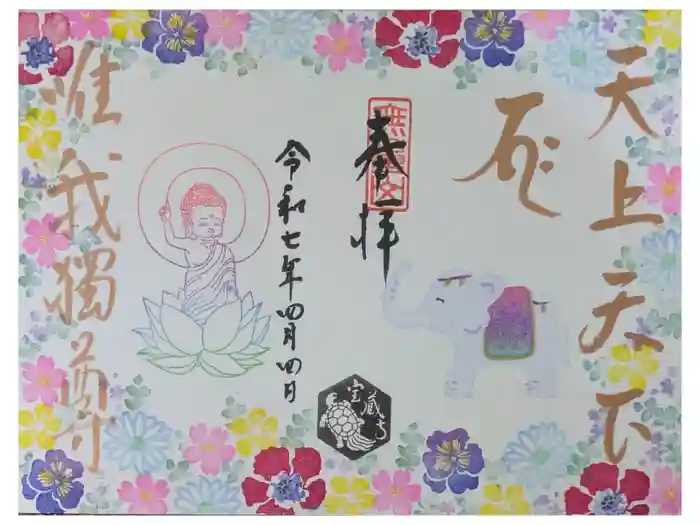 天上天下
奉拝
令和七年四月四日
宝蔵寺
唯我獨尊